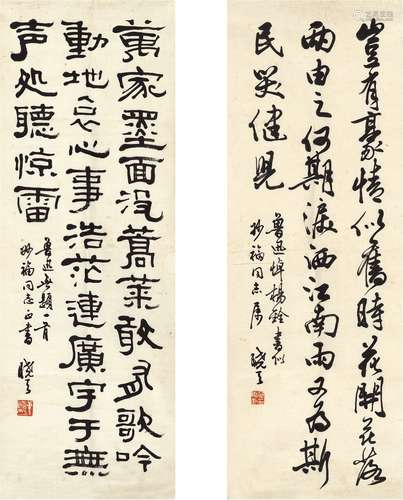 豈有豪情似舊時花開花落
兩由之何期淚洒江南雨又为斯
民哭健児
魯迅悼楊銓書似
妙福同志屬
萬家墨面没蒿萊敢有歌吟
動地哀心事浩茫連廣宇于無
声处聽惊雷
魯迅無題一首
妙福同志正書